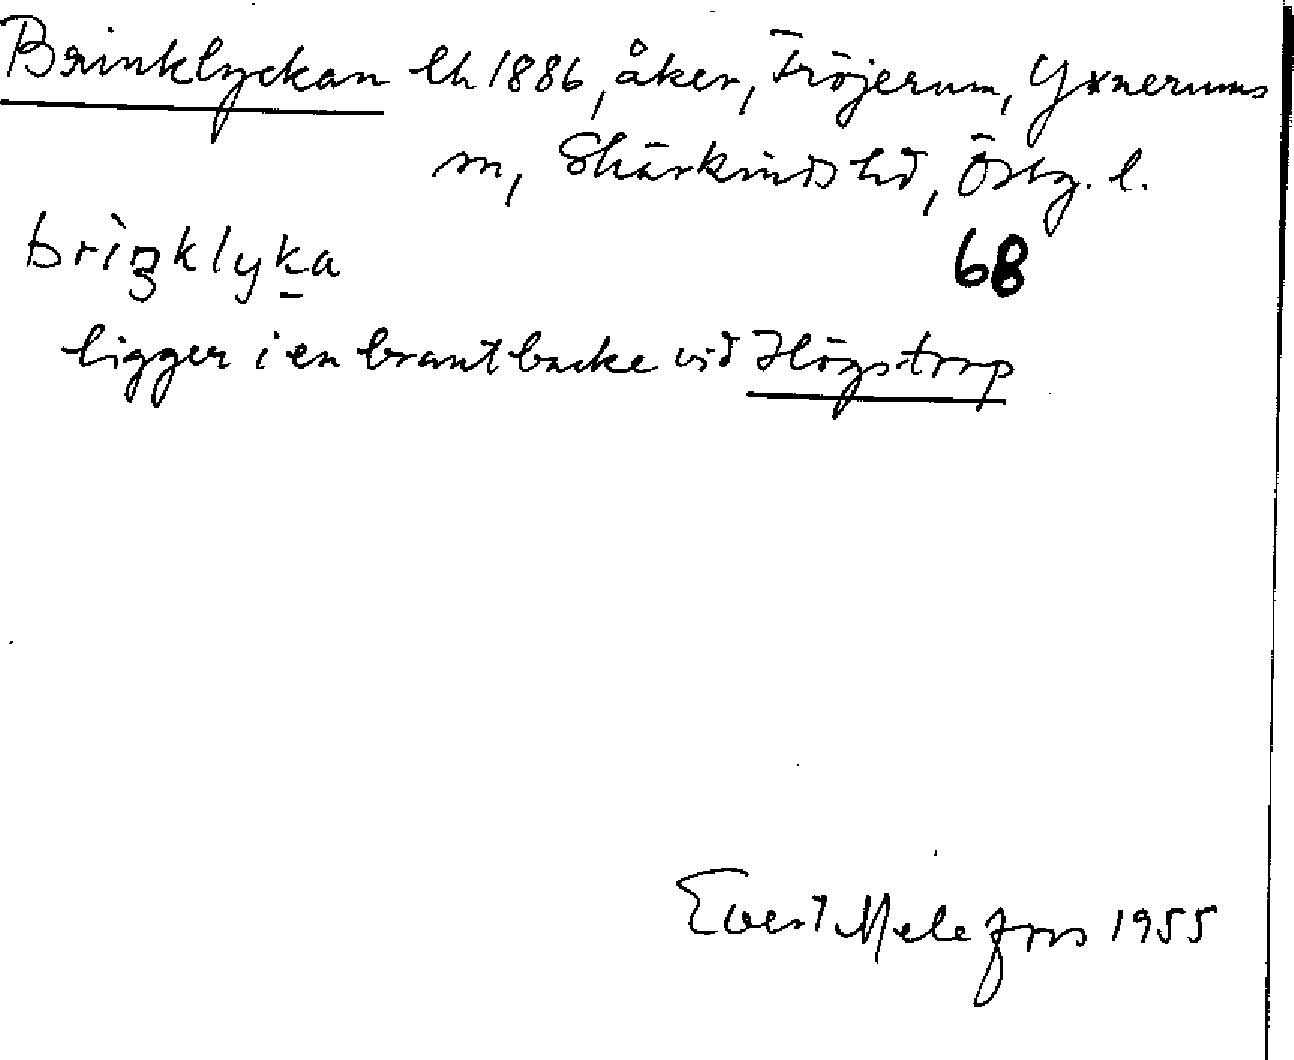 Brinklyckan lh 1886, åker, Fröjerum, Yxnerums
sn, Skärkinds hd, Östg. l.
brìŋklyk̠a
68
ligger i en brant backe vid Högstorp
Evert Melefors 1955